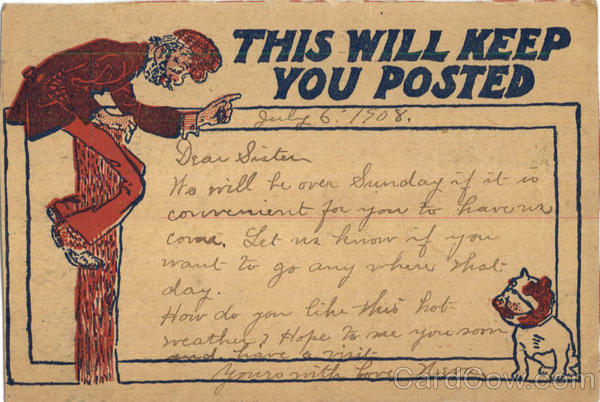 THIS WILL KEEP
YOU POSTED
July 6' 1908.
Dear Sister
We will be over Sunday if it is
convenient for you to have us
come. Let us know if you
want to go any where that
day.
How do you like this hot
weather? Hope to see you soon
and have a visit
Yours with love
CardCow.com